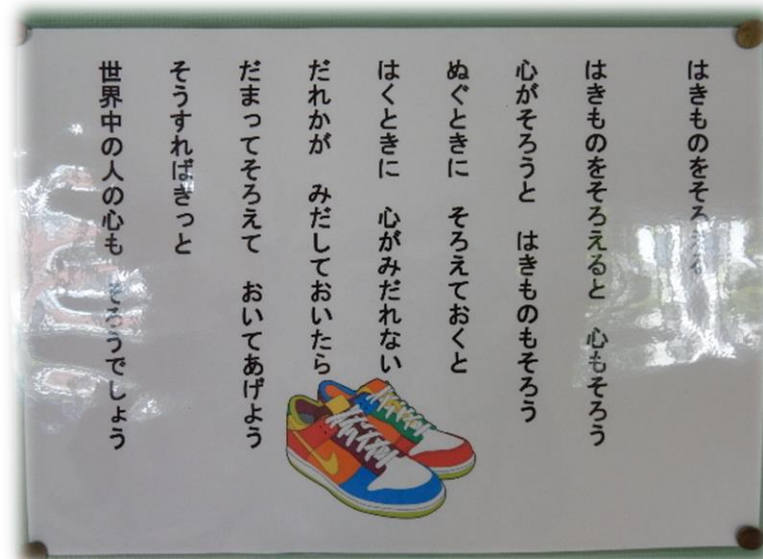 はきものをそろえる
はきものをそろえると　心もそろう
心がそろうと　はきものもそろう
ぬぐときに　そろえておくと
はくときに　心がみだれない
だれかが　みだしておいたら
だまってそろえて　おいてあげよう
そうすればきっと
世界中の人の心も　そろうでしょう